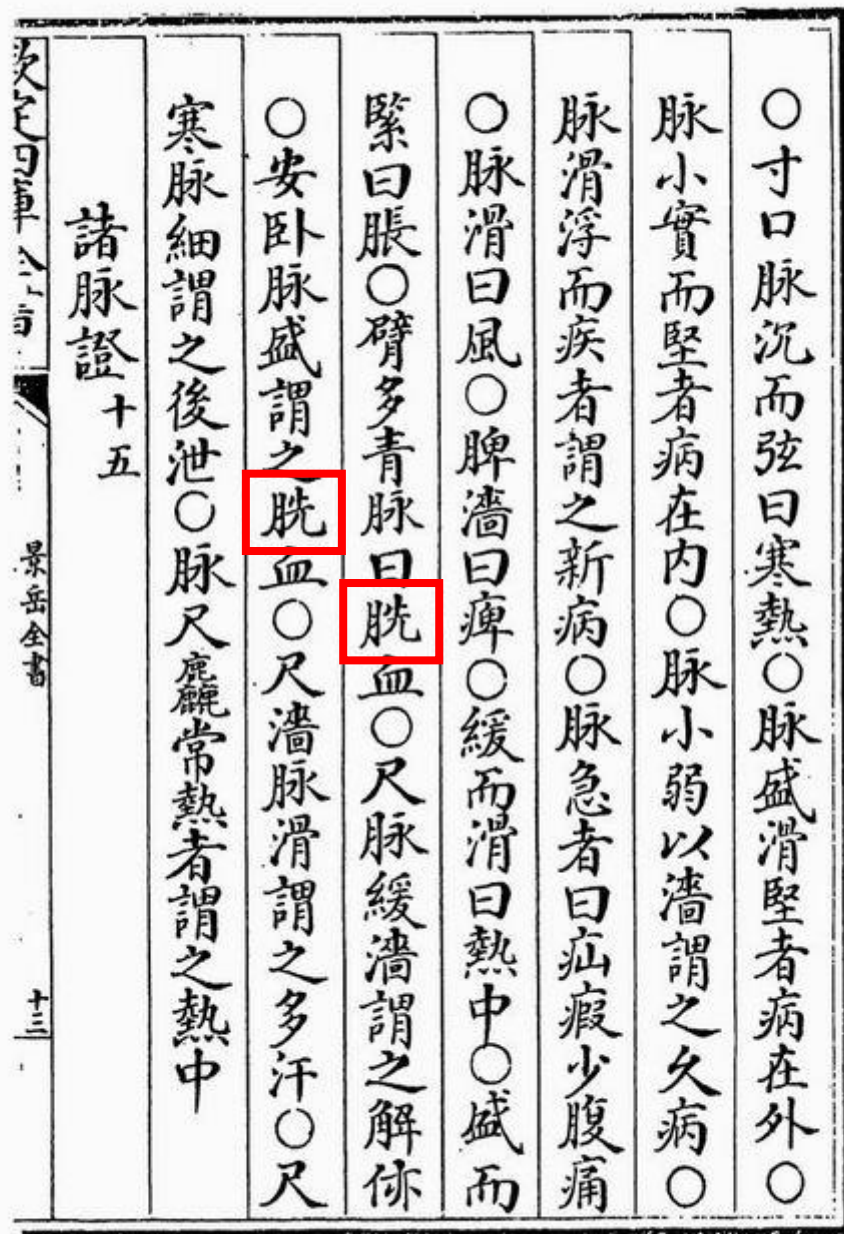 ○寸口脉沉而弦曰寒熱○脉盛滑堅者病在外○
脉小實而堅者病在内○脉小弱以濇謂之久病○
脉滑浮而疾者謂之新病○脉急者曰疝瘕少腹痛
○脉滑曰風○脾濇曰痺○緩而滑曰熱中○盛而
緊曰脹○臂多青脉曰胱血○尺脉緩濇謂之解㑊
○安卧脉盛謂之胱血○尺濇脉滑謂之多汗○尺
寒脉細謂之後泄○脉尺麤常熱者謂之熱中
諸脉證十五
欽定四庫全書
景岳全書
十三